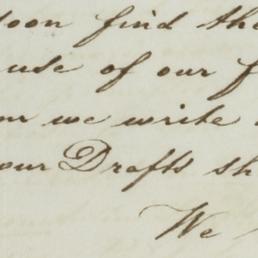 soon find the
use of our f
we write
our Drafts sh
We